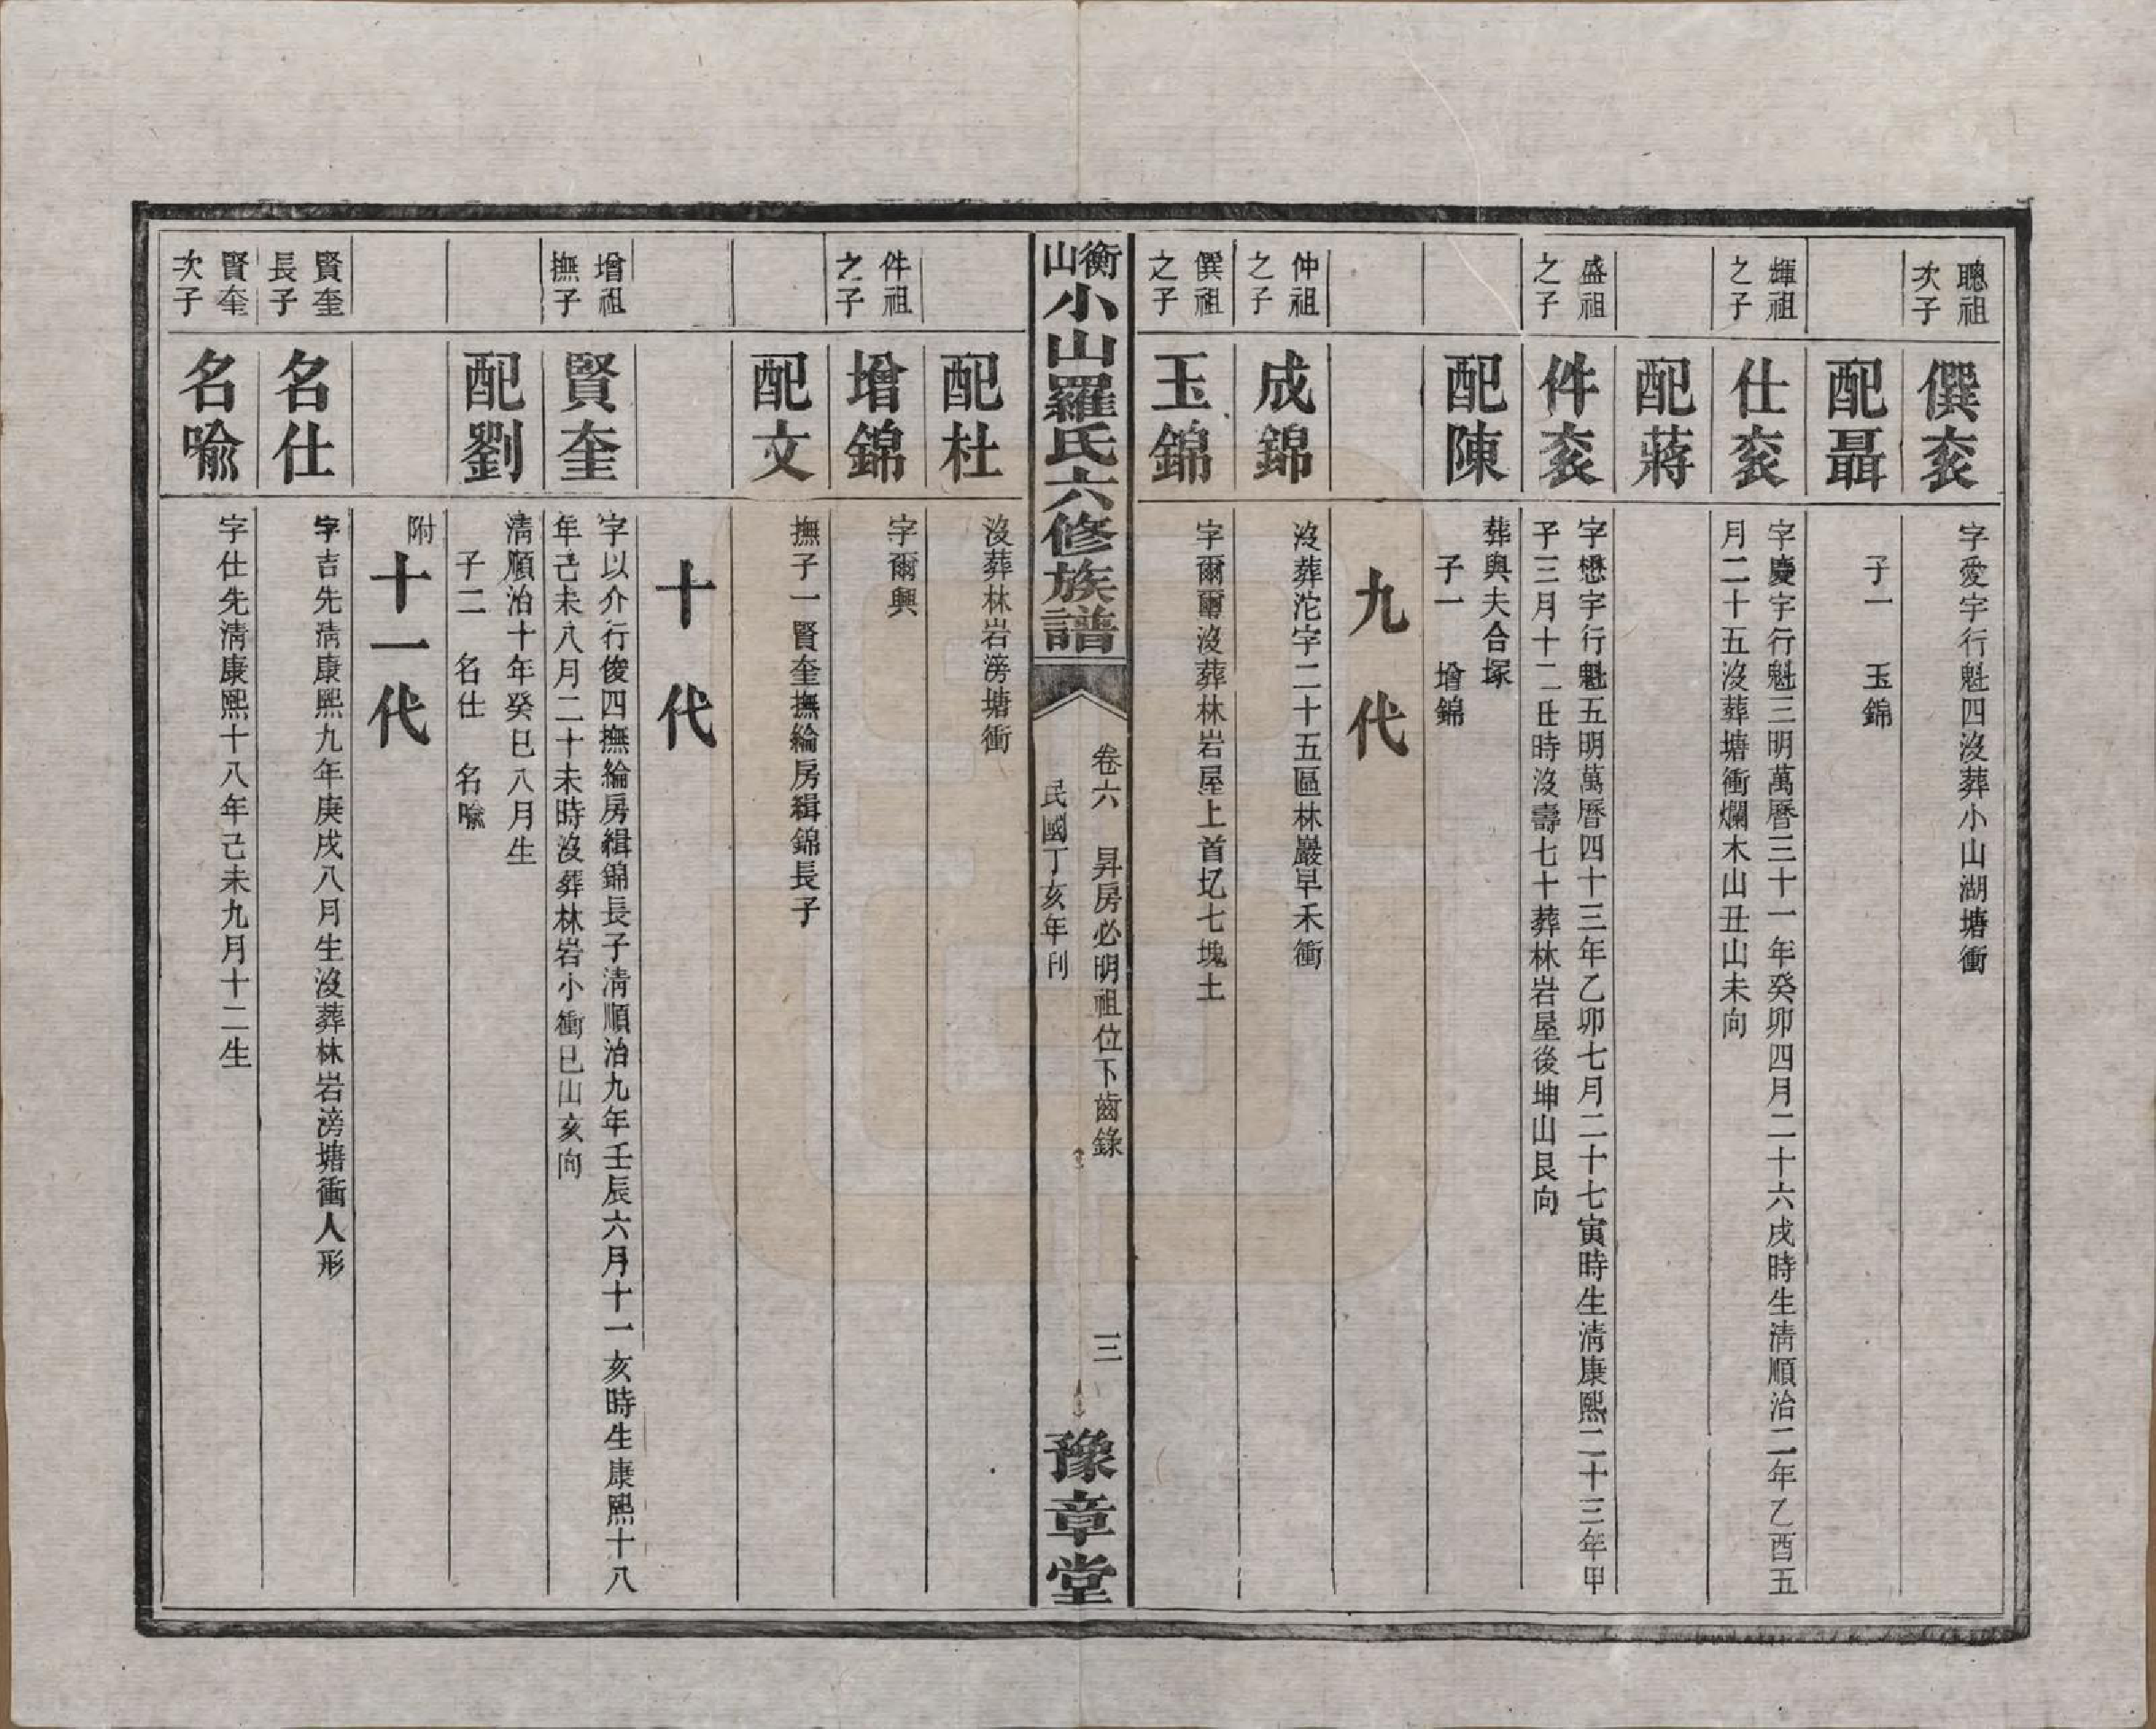 聰祖
次子
僎衮
字愛宇行魁四沒葬小山湖塘衝
配聶
子一　玉錦
輝祖
之子
仕衮
字慶宇行魁三明萬曆三十一年癸卯四月二十六戌時生淸順治二年乙酉五
月二十五沒葬塘衝爛木山丑山未向
配蔣
盛祖
之子
件衮
字懋宇行魁五明萬曆四十三年乙卯七月二十七寅時生淸康熙二十三年甲
子三月十二丑時沒壽七十葬林岩屋後坤山艮向
配陳
葬與夫合塚
子一　增錦
九代
仲祖
之子
成錦
沒葬沱字二十五區林巖早禾衝
僎祖
之子
玉錦
字爾爾沒葬林岩屋上首圪七塊土
衡山小山羅氏六修族譜
卷六　昇房必明祖位下齒錄
民國丁亥年刊
三
豫章堂
配杜
沒葬林岩滂塘衝
件祖
之子
增錦
字爾興
配文
撫子一賢奎撫綸房緝錦長子
十代
增祖
撫子
賢奎
字以介行俊四撫綸房緝錦長子淸順治九年壬辰六月十一亥時生康熙十八
年己未八月二十未時沒葬林岩小衝巳山亥向
配劉
淸順治十年癸巳八月生
子二　名仕　名喩
附
十一代
賢奎
長子
名仕
字吉先淸康熙九年庚戌八月生沒葬林岩滂塘衝人形
賢奎
次子
名喩
字仕先淸康熙十八年己未九月十二生